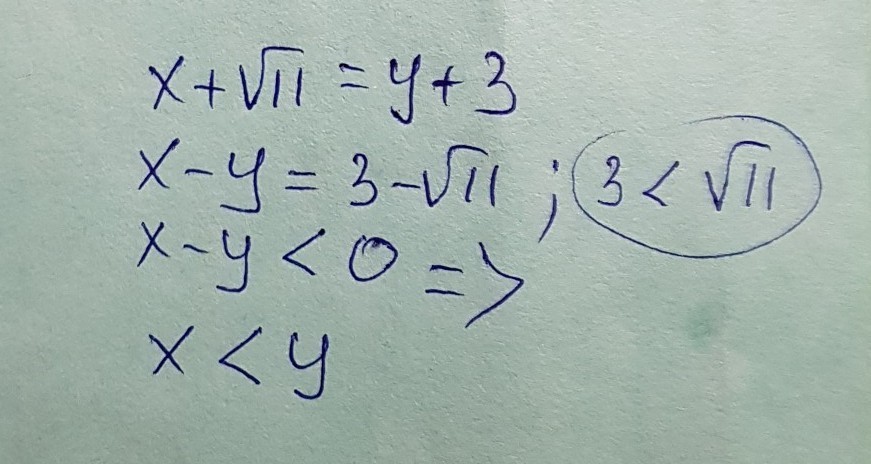 x+√11 = y+3
x-y = 3-√11 ; 3 < √11
x-y < 0 =>
x < y